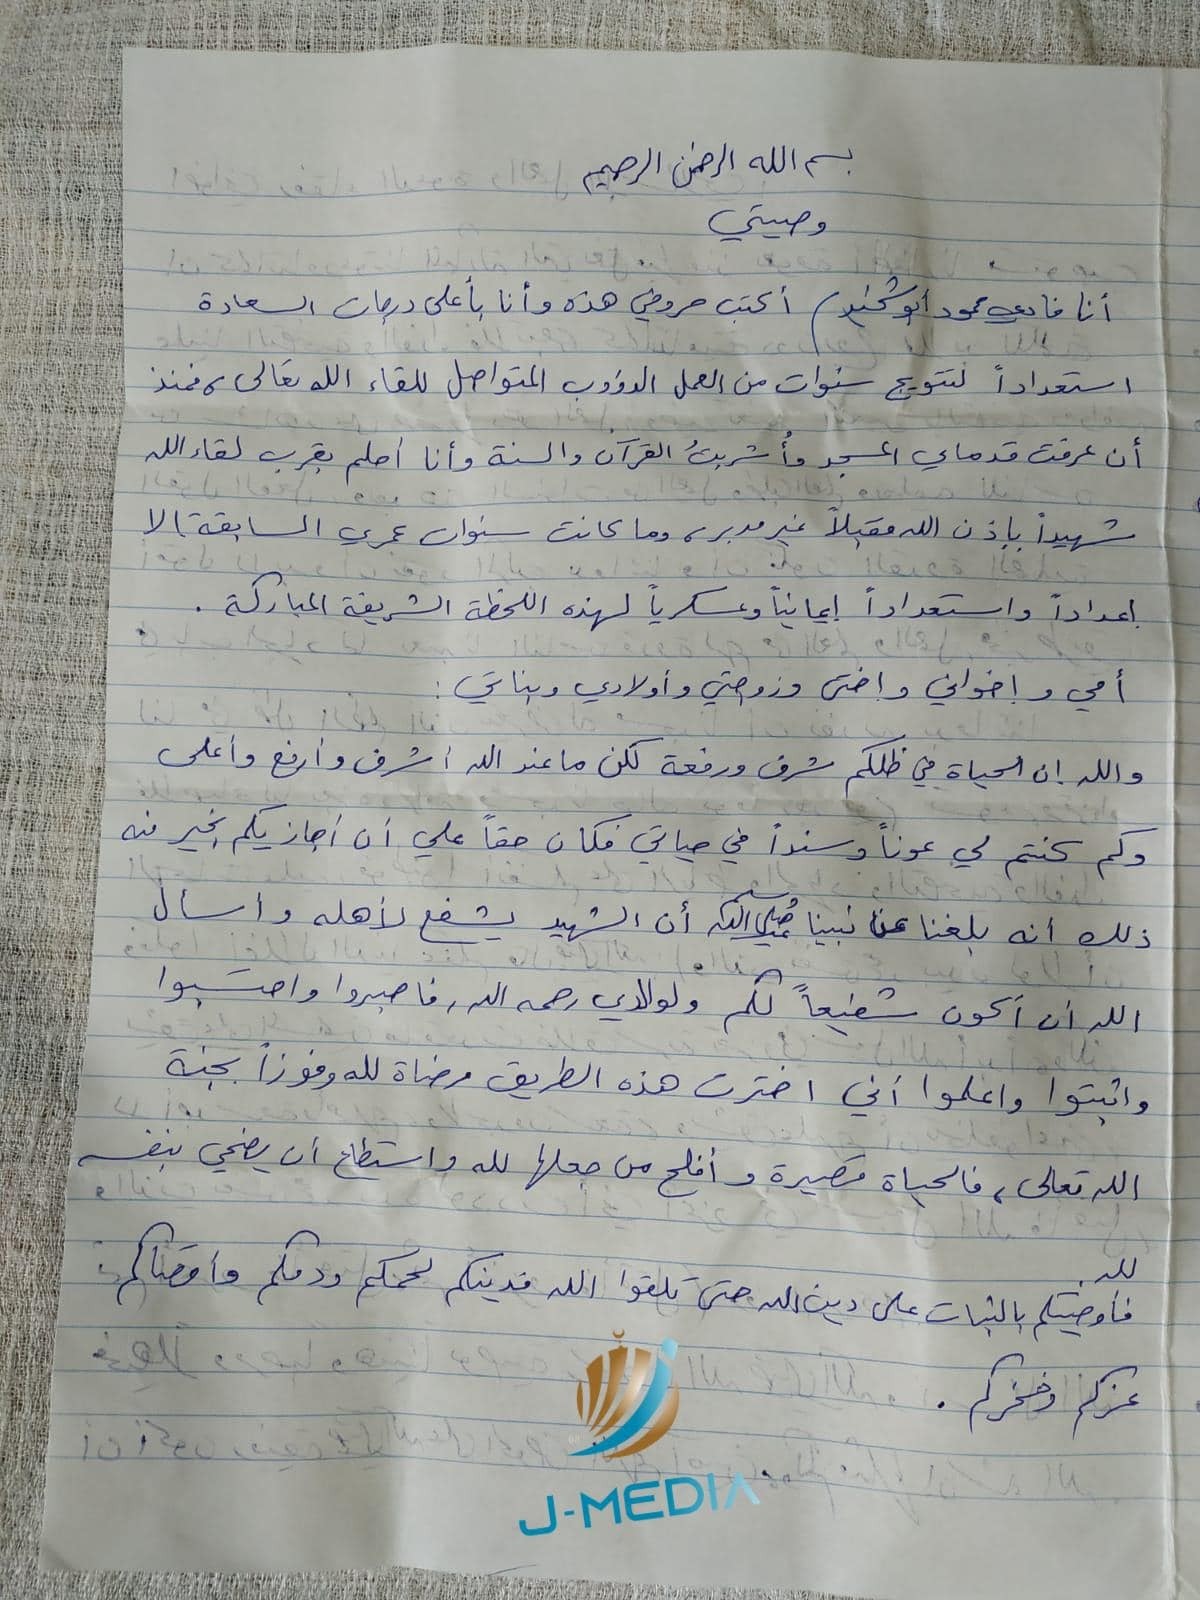 بسم الله الرحمن الرحيم
وصيتي
أنا فادي محمود أبو شخيدم / أكتب حروفي هذه وأنا بأعلى درجات السعادة
استعداداً لتتويج سنوات من العمل الدؤوب المتواصل للقاء الله تعالى، فمنذ
أن عرفت قدماي المسجد وأُشربتُ القرآن والسنة وأنا أحلم بقرب لقاء الله
شهيداً بإذن الله مقبلاً غير مدبر، وما كانت سنوات عمري السابقة إلا
إعداداً واستعداداً إيمانياً وعسكرياً لهذه اللحظة الشريفة المباركة.
أمي وإخواني وأختي وزوجتي وأولادي وبناتي:
والله إن الحياة في ظلكم شرف ورفعة لكن ما عند الله أشرف وأرفع وأعلى
وكم كنتم لي عوناً وسنداً في حياتي فكان حقاً علي أن أجازيكم بخير منه
ذلك أنه بلغنا عن نبينا ﷺ أن الشهيد يشفع لأهله وأسأل
الله أن أكون شفيعاً لكم ولوالدي رحمه الله، فاصبروا واحتسبوا
واثبتوا واعلموا أني اخترت هذه الطريق مرضاة لله وفوزاً بجنة
الله تعالى، فالحياة قصيرة وأفلح من جعلها لله واستطاع أن يضحي بنفسه
لله.
فأوصيكم بالثبات على دين الله حتى تلقوا الله فدينكم لحمكم ودمكم وأقصاكم
عزكم وفخركم.
J-MEDIA